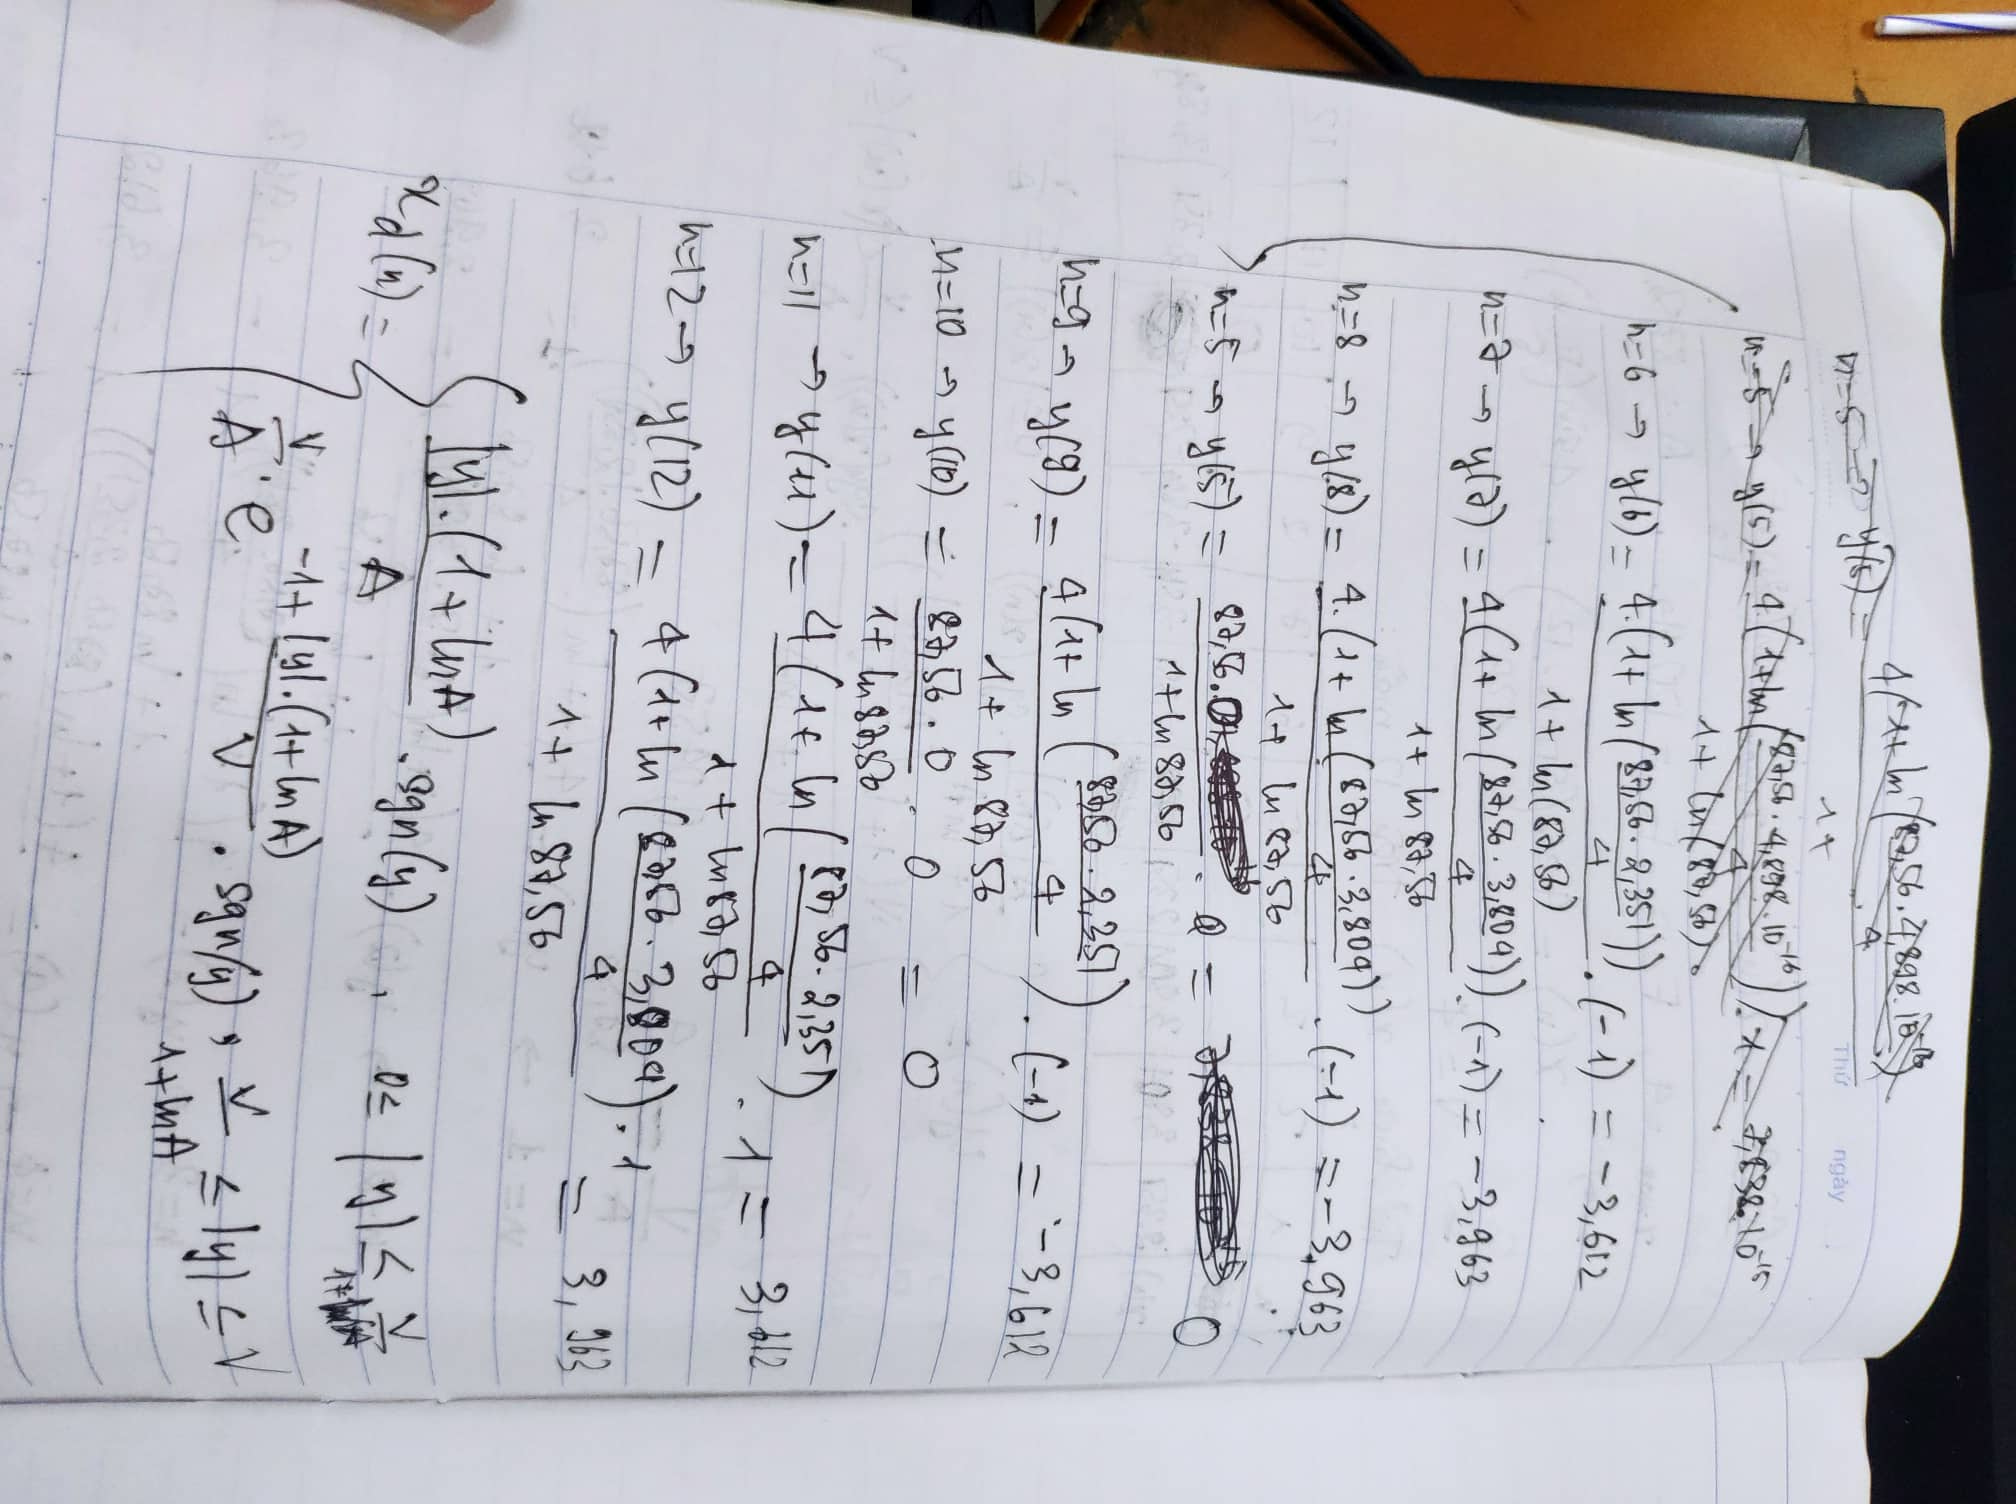 Thứ ngày
n=5 → y(5) = 4(1+ln(87,56.4,898.10^-16/4))/1+
n=5 → y(5) = 4.(1+ln(87,56.4,898.10^-16/4))/1+ln(87,56) . 1 = 7,838.10^-15
n=6 → y(6) = 4.(1+ln(87,56.2,351/4))/1+ln(87,56) . (-1) = -3,612
n=7 → y(7) = 4(1+ln(87,56.3,804/4))/1+ln 87,56 . (-1) = -3,963
n=8 → y(8) = 4.(1+ln(87,56.3,804/4))/1+ln 87,56 . (-1) = -3,963
n=5 → y(5) = 87,56.0/1+ln 87,56 . 0 = 0
n=9 → y(9) = 4(1+ln(87,56.2,351/4))/1+ln 87,56 . (-1) = -3,612
n=10 → y(10) = 87,56.0/1+ln 87,56 . 0 = 0
n=11 → y(11) = 4(1+ln(87,56.2,351/4))/1+ln 87,56 . 1 = 3,612
n=12 → y(12) = 4(1+ln(87,56.3,804/4))/1+ln 87,56 . 1 = 3,963
x_d(n) = { |y|.(1+lnA)/A . sgn(y), 0≤ |y| ≤ V/
V/A . e^(-1+|y|.(1+lnA)/V) . sgn(y), V/1+lnA ≤ |y| ≤ V